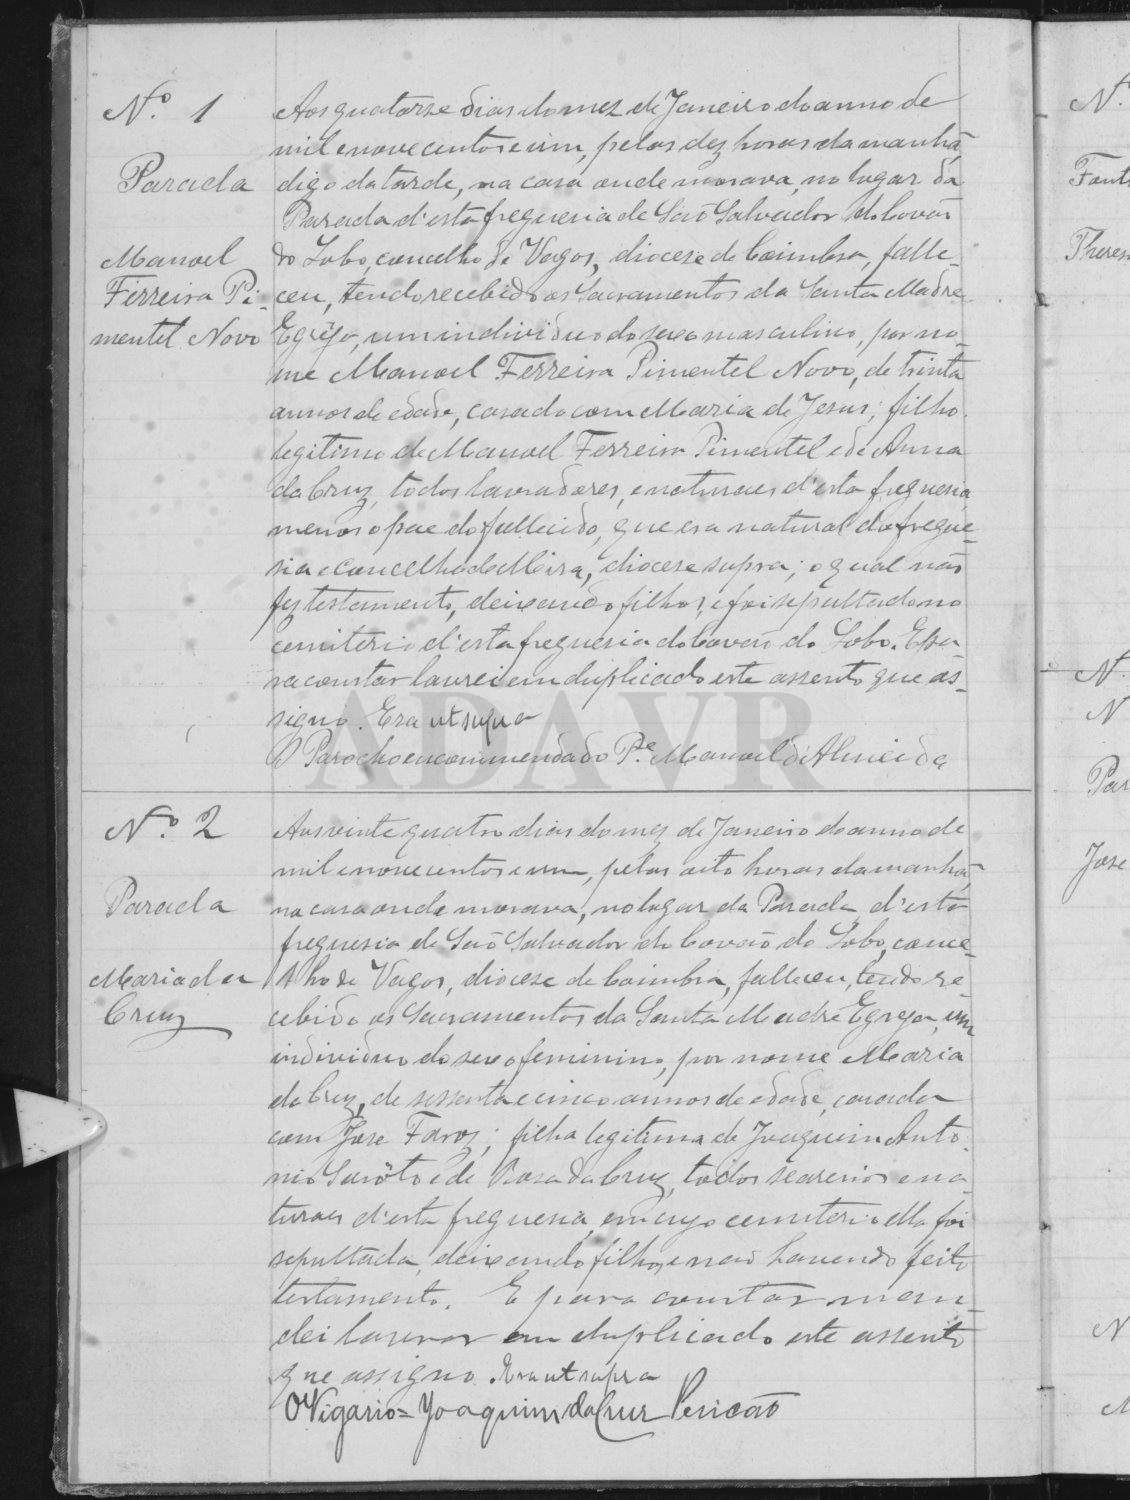 Nº 1
Parada
Manoel
Ferreira Pi-
mentel Novo
Aos quatorze dias do mez de Janeiro do anno de
mil e novecentos e um, pelas dez horas da manhã,
digo da tarde, na casa onde morava, no lugar da
Parada d'esta freguesia de São Salvador do Covão
do Lobo, concelho de Vagos, diocese de Coimbra, falle-
ceu, tendo recebido os Sacramentos da Santa Madre
Egreja, um individuo do sexo masculino, por no-
me Manoel Ferreira Pimentel Novo, de trinta
annos de edade, casado com Maria de Jesus; filho
legitimo de Manoel Ferreira Pimentel e de Anna
da Cruz, todos lavradores, e naturaes d'esta freguesia,
menos o pae do fallecido, que era natural da fregue-
sia e concelho de Mira, diocese supra; o qual não
fez testamento, deixando filhos, e foi sepultado no
cemiterio d'esta freguesia do Covão do Lobo. E pa-
ra constar lavrei em duplicado este assento que as-
signo. Era ut supra
O Parocho encommendado Pe. Manoel d'Almeida
Nº 2
Parada
Maria da
Cruz
Aos vinte quatro dias do mez de Janeiro do anno de
mil e novecentos e um, pelas oito horas da manhã,
na casa onde morava, no lugar da Parada, d'esta
freguesia de São Salvador do Covão do Lobo, conce-
lho de Vagos, diocese de Coimbra, falleceu, tendo re-
cebido os Sacramentos da Santa Madre Egreja, um
individuo do sexo feminino, por nome Maria
da Cruz, de sessenta e cinco annos de edade, casada
com José ; filha legitima de Joaquim Anto-
nio e de Rosa da Cruz, todos seareiros e na-
turaes d'esta freguesia, em cujo cemiterio ella foi
sepultada, deixando filhos, e não havendo feito
testamento. E para constar man-
dei lavrar em duplicado este assento
que assigno. Era ut supra
O Vigario = Joaquim da Cruz Pericão
ADAVR
Nº
Theres
Nº
N
Par
Jose
N
M